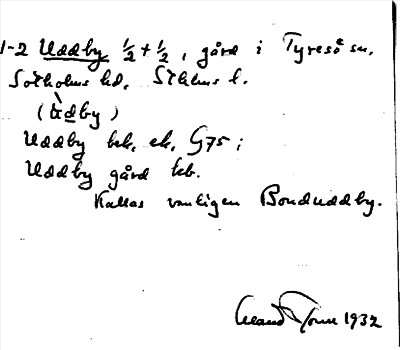 1-2 Uddby ½ + ½, gård i Tyresö sn.
Sotholms hd. Sthlms l.
(Ùdby)
Uddby hck. ek. G75;
Uddby gård kb.
Kallas vanligen Bonduddby.
1932